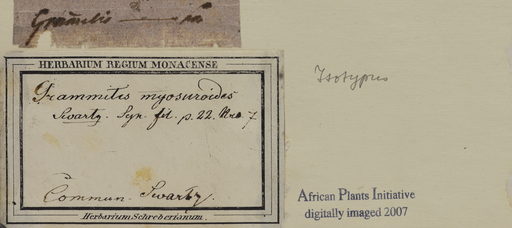 HERBARIUM REGIUM MONACENSE
Grammitis myosuroides
Swartz. Syn. fil. p. 22. Nro 7
Commun. Swartz.
Herbarium Schreberianum.
Isotypus
African Plants Initiative
digitally imaged 2007